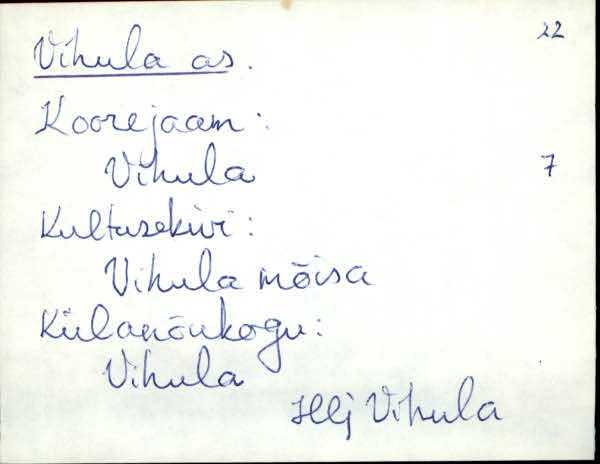 22
Vihula as.
Koorejaam:
Vihula 7
Kultusekivi:
Vihula mõisa
Külanõukogu:
Vihula
Hlj Vihula